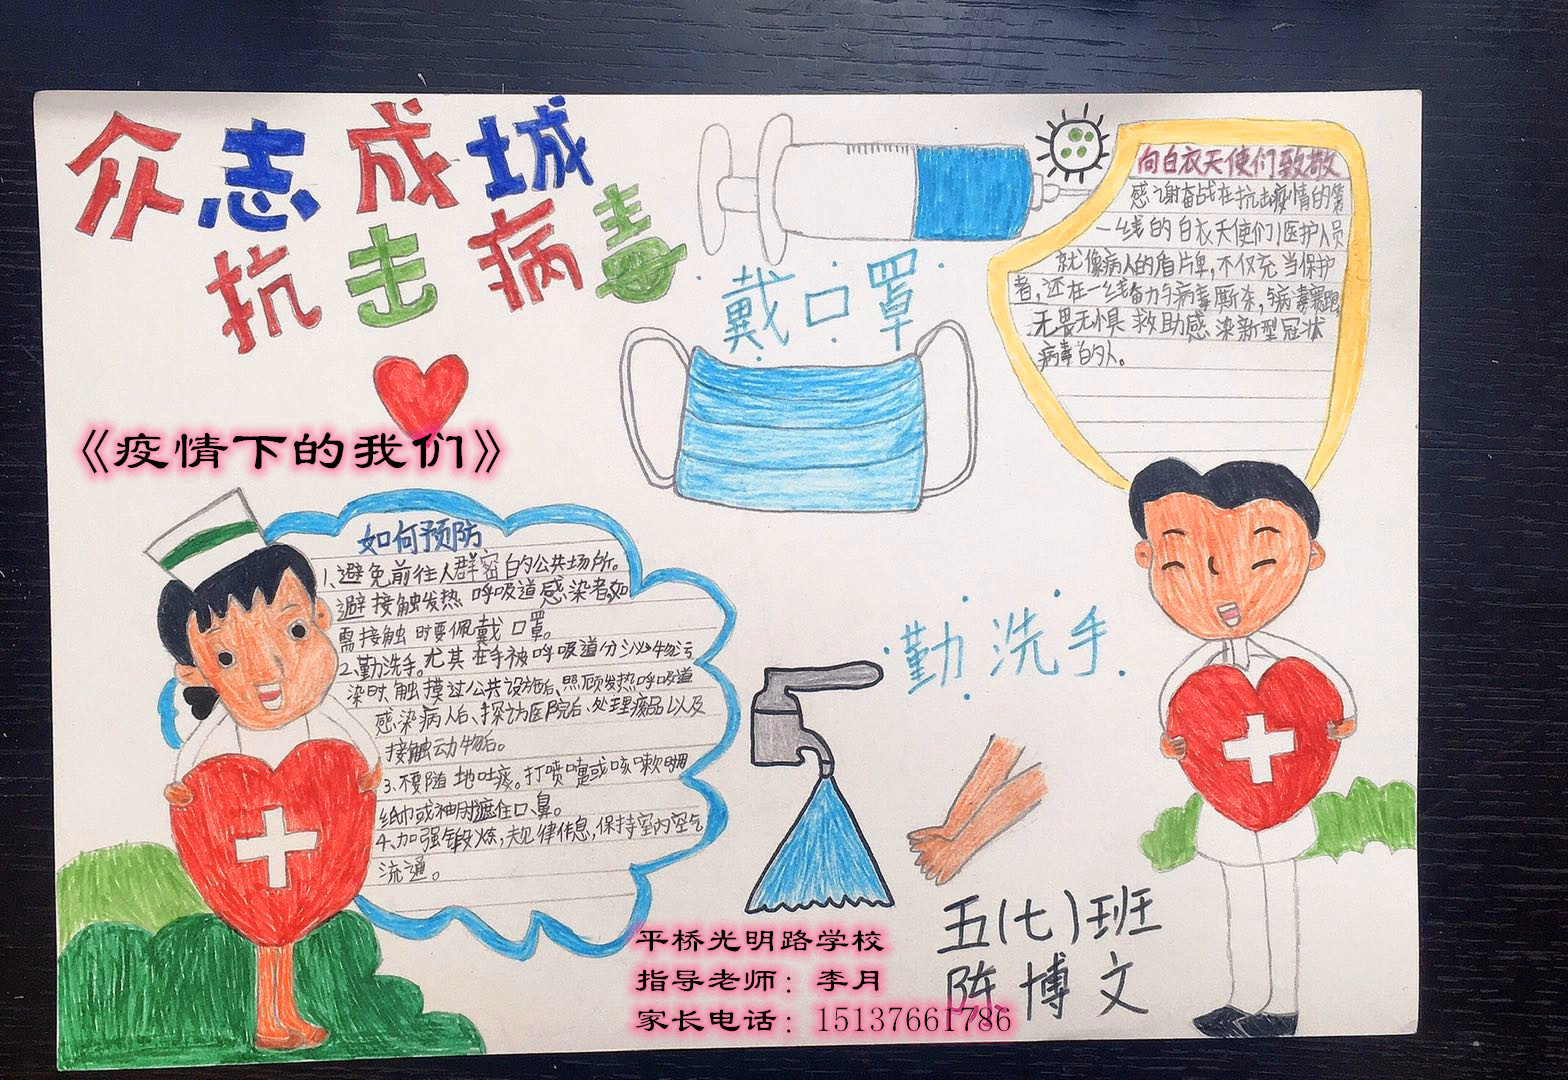 众志成城
抗击病毒
《疫情下的我们》
戴口罩
向白衣天使们致敬
感谢奋战在抗击疫情的第
一线的白衣天使们!医护人员
就像病人的盾片单,不仅充当保护
者,还在一线奋力与病毒厮杀,与病毒
无畏无惧救助感染新型冠状
病毒的人。
如何预防
1.避免前往人群密的公共场所。
避接触发热呼吸道感染者如
需接触时要佩戴口罩。
2.勤洗手。尤其在手被呼吸道分泌物污
染时、触摸过公共设施后、照顾发热呼吸道
感染病人后、探访医院后、处理废品以及
接触动物后。
3、不要随地吐痰。打喷嚏或咳嗽时用
纸巾或袖肘遮住口鼻。
4.加强锻炼,规律作息,保持室内空气
流通。
勤洗手
五(七)班
陈博文
平桥光明路学校
指导老师：李月
家长电话：15137661786